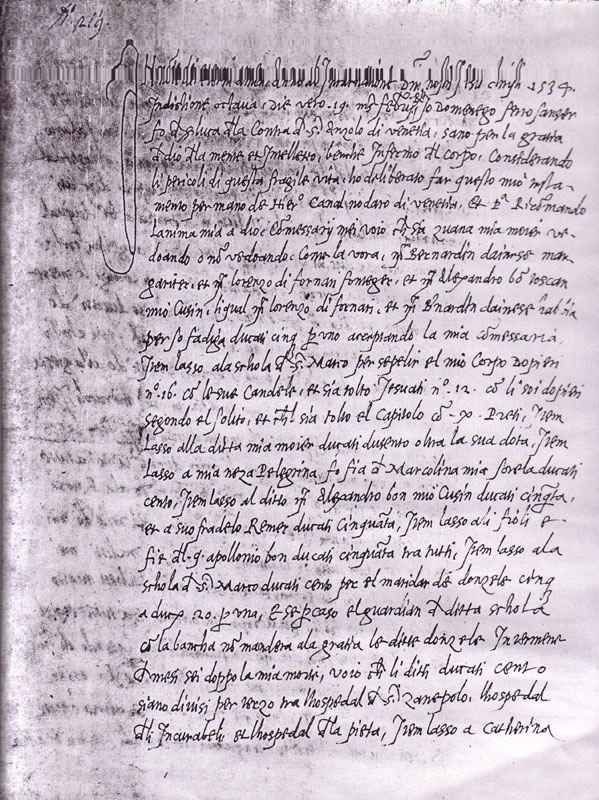 n.º 219.
In nomine dei eterni amen, Anno ab Incarnatione Dni nostri Jesu christi 1534.
Indictione octava, Die vero .19. mensis
fo de la Contra de S. Anzolo di venetia, sano per la gratia
d dio dla mente et Intelletto, benche Infermo dl corpo, Considerando
li pericoli di questa fragile vita, ho deliberato far questo mio testa-
mento per mano de Hier.º Canal nodaro di venetia, et p.ª Ricomando
Lanima mia a dio: Comessarij mei voio ch sia zuana mia moier ve-
doando o nõ vedoando: Come la vora, m̃ Bernardin dainese mar-
gariter, et m̃ Lorenzo di fornari fonteger, et m̃ Alexandro bõ toscan
mio Cusin, liqual m̃ lorenzo di fornari, et m̃ B'nardin dainese
per so fadiga ducati cinq p uno acceptando la mia cõmessaria,
Item lasso ala schola d S. Marco per sepelir el mio Corpo Dopieri
nº.16. cõ le sue Candele, et sia tolto Jesuati nº.12. cõ li soi dopieri
segondo el solito, et sia tolto el Capitolo cõ .x. Preti, Item
Lasso alla ditta mia moier ducati dusento oltra la sua dota, Item
Lasso a mia neza Pelegrina, fo fia d Marcolina mia sorela ducati
cento, Item lasso al ditto m̃ Alexandro bon mio Cusin ducati cinq̃ta,
et a suo fradelo Remer ducati Cinquãta, Item lasso ali fioli et
fie dl q. apollonio bon ducati cinquãta tra tutti, Item lasso ala
schola d S. Marco ducati cento per el maridar de donzele cinq
a duc. 20. p una, E se p caso el guardian d ditta schola
cõ la bancha nõ mandera ala gratia le ditte donzele In termene
d mesi sei doppo la mia morte, voio ch li ditti ducati cento
siano divisi per terzo tra lhospedal d S. Zanepolo, lhospedal
dli Incurabeli et lhospedal dla pieta, Item lasso a Catherina